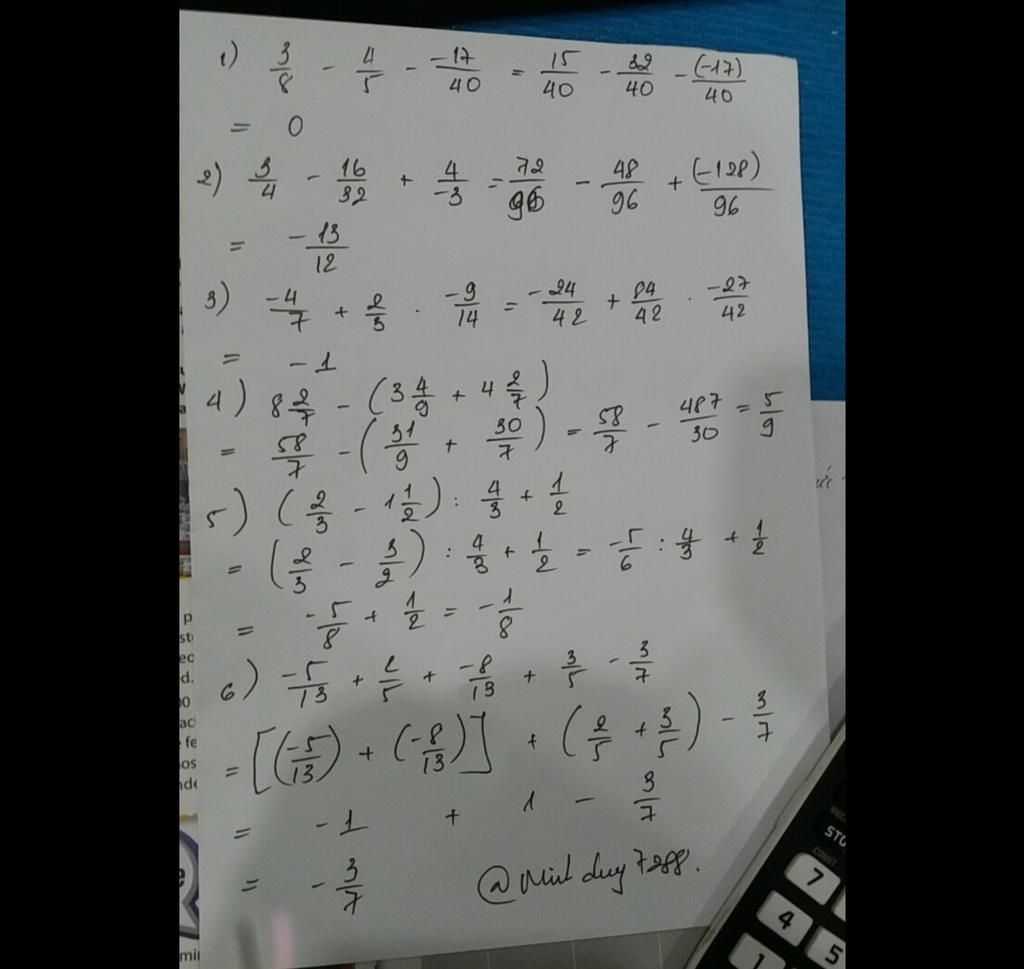 1) 3/8 - 4/5 - -17/40 = 15/40 - 32/40 - (-17)/40
= 0
2) 3/4 - 16/32 + 4/-3 = 72/96 - 48/96 + (-128)/96
= -13/12
3) -4/7 + 2/3 . -9/14 = -24/42 + 84/42 . -27/42
= -1
4) 8 2/7 - (3 4/9 + 4 2/7)
= 58/7 - (31/9 + 30/7) = 58/7 - 487/30 = 5/9
5) (2/3 - 1 1/2) : 4/3 + 1/2
= (2/3 - 3/2) : 4/3 + 1/2 = -5/6 : 4/3 + 1/2
= -5/8 + 1/2 = -1/8
6) -5/13 + 2/5 + -8/13 + 3/5 - 3/7
= [(-5/13) + (-8/13)] + (2/5 + 3/5) - 3/7
= -1 + 1 - 3/7
= -3/7
@Minh duy 7288.
STO
CONST
7
4
5
1